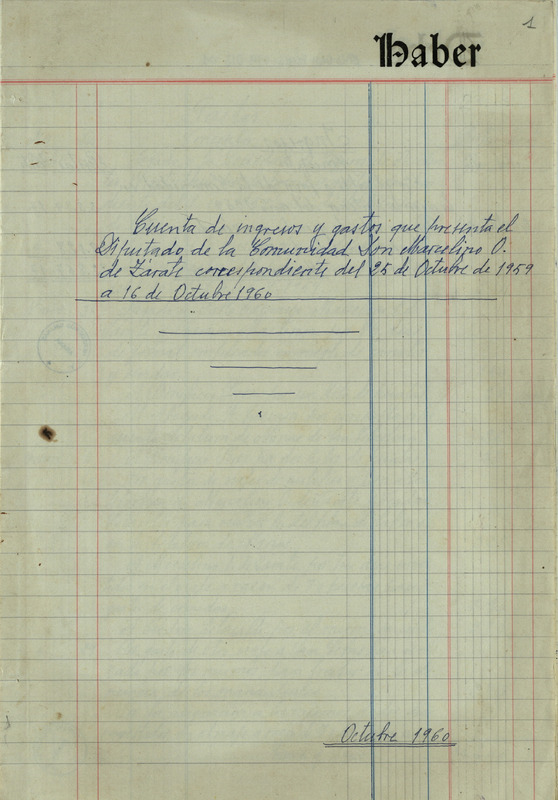 1
Haber
Cuenta de ingresos y gastos que presenta el
Diputado de la Comunidad Don Marcelino O.
de Zárate correspondiente del 25 de Octubre de 1959
a 16 de Octubre 1960
Octubre 1960